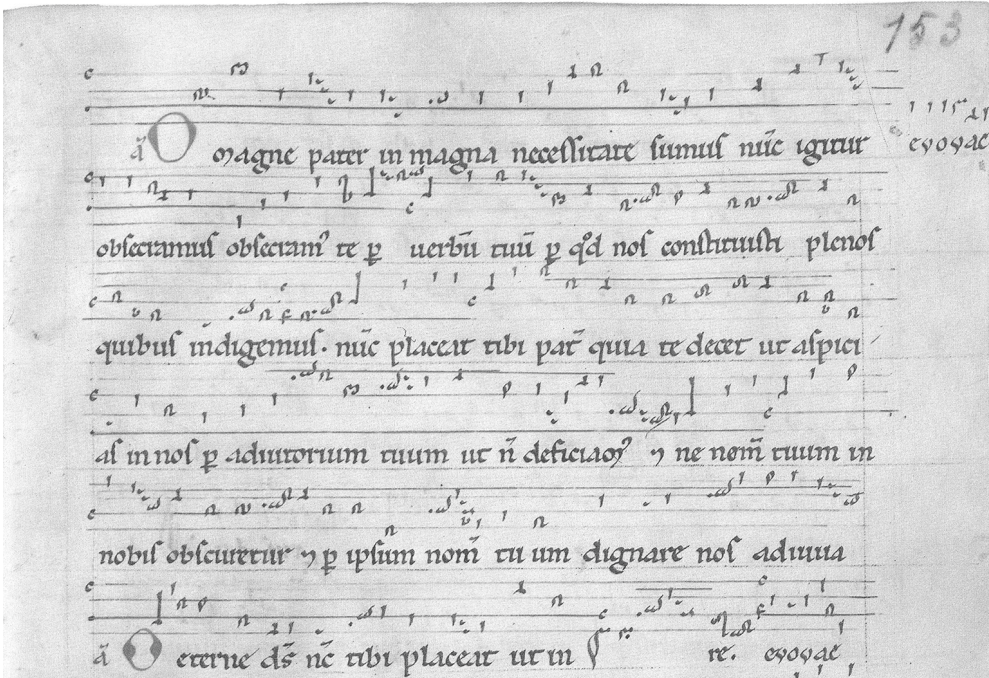 153
a̅ O magne pater in magna necessitate sumus nu̅c igitur evovae
obsecramus obsecram⁹ te ꝑ uerbu̅ tuu̅ ꝑ qod nos constituisti plenos
quibus indigemus. nu̅c placeat tibi pat̅ quia te decet ut aspici
as in nos ꝑ adiutorium tuum ut n̅ deficiam⁹ ⁊ ne nom̅ tuum in
nobis obscuretur ⁊ ꝑ ipsum nom̅ tuum dignare nos adiuua
a̅ O eterne ds̅ nc̅ tibi placeat ut in re. evovae